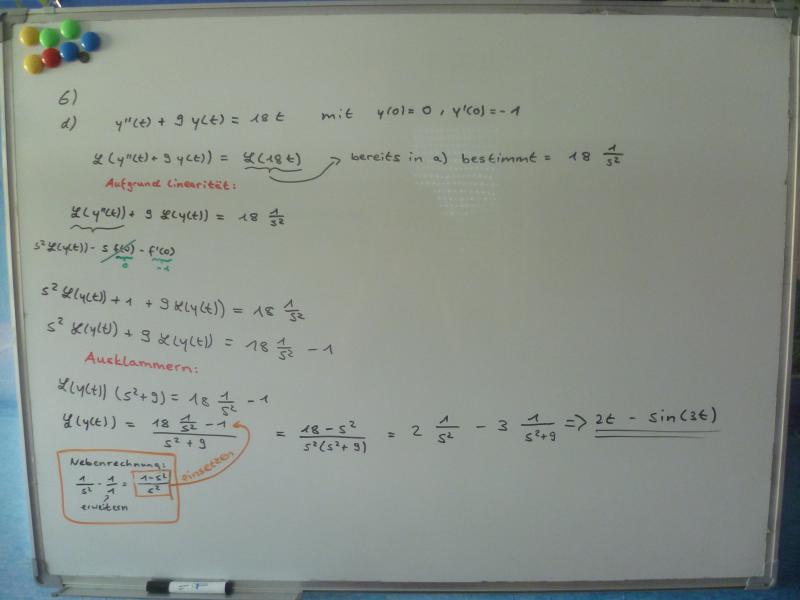 6)
d) y''(t) + 9 y(t) = 18 t mit y(0) = 0, y'(0) = -1
ℒ(y''(t) + 9 y(t)) = ℒ(18 t) → bereits in a) bestimmt = 18 1/s²
Aufgrund Linearität:
ℒ(y''(t)) + 9 ℒ(y(t)) = 18 1/s²
s² ℒ(y(t)) - s f(0) - f'(0)
0 -1
s² ℒ(y(t)) + 1 + 9 ℒ(y(t)) = 18 1/s²
s² ℒ(y(t)) + 9 ℒ(y(t)) = 18 1/s² - 1
Ausklammern:
ℒ(y(t)) (s²+9) = 18 1/s² - 1
ℒ(y(t)) = (18 1/s² - 1)/(s² + 9) = (18 - s²)/(s²(s²+9)) = 2 1/s² - 3 1/(s²+9) => 2t - sin(3t)
Nebenrechnung:
1/s² - 1/1 = (1-s²)/s²
erweitern
einsetzen